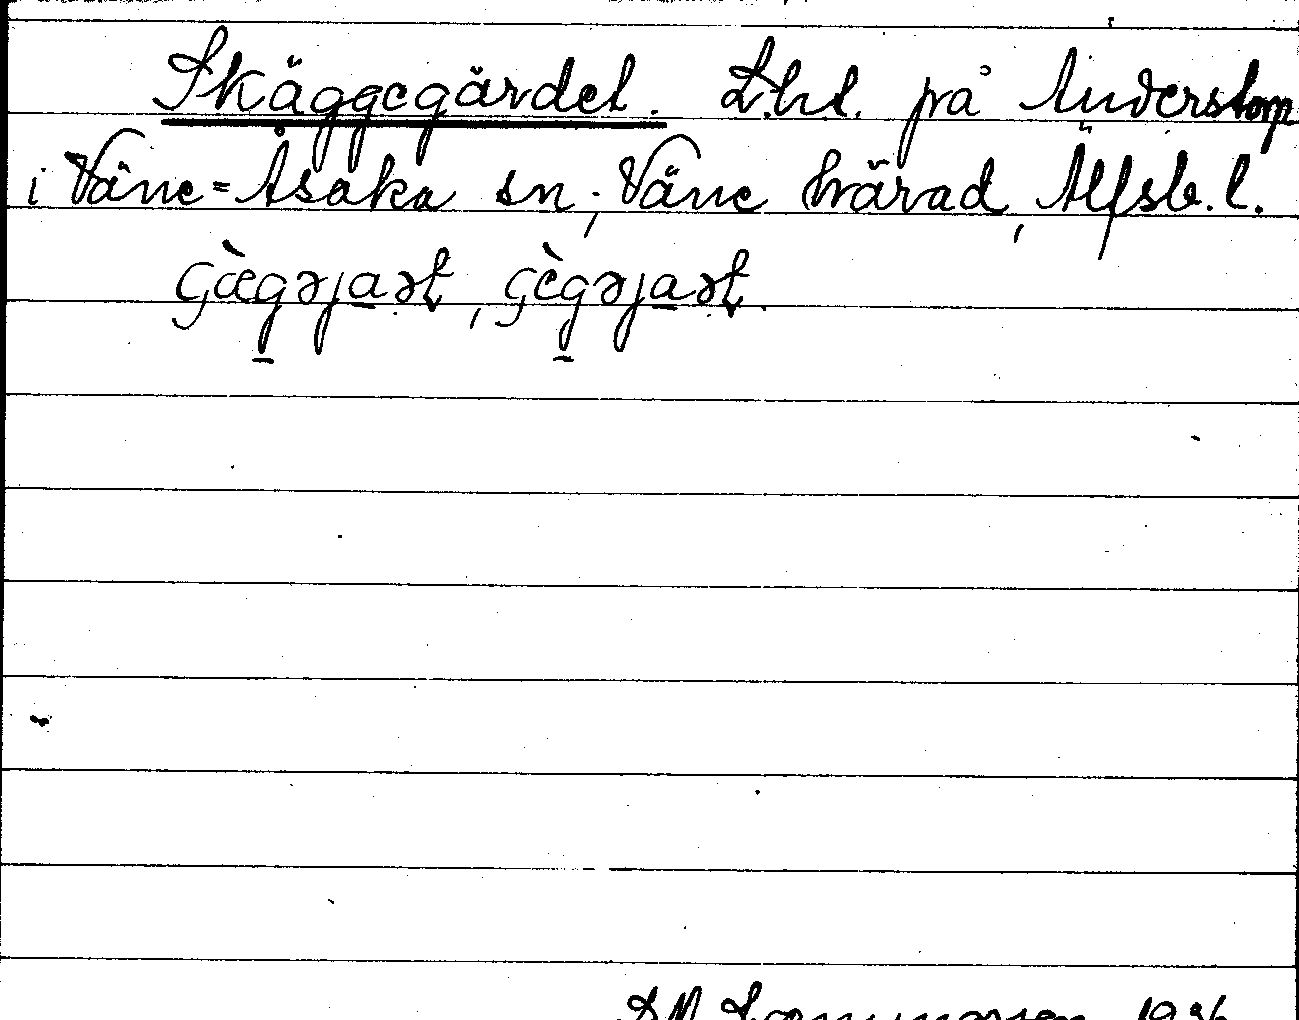 Skäggegärdet. L.hl. på Anderstorp
i Väne=Åsaka sn, Väne härad, Älfsb. l.
çæ̀gərjaət, çègərjaət.
1936